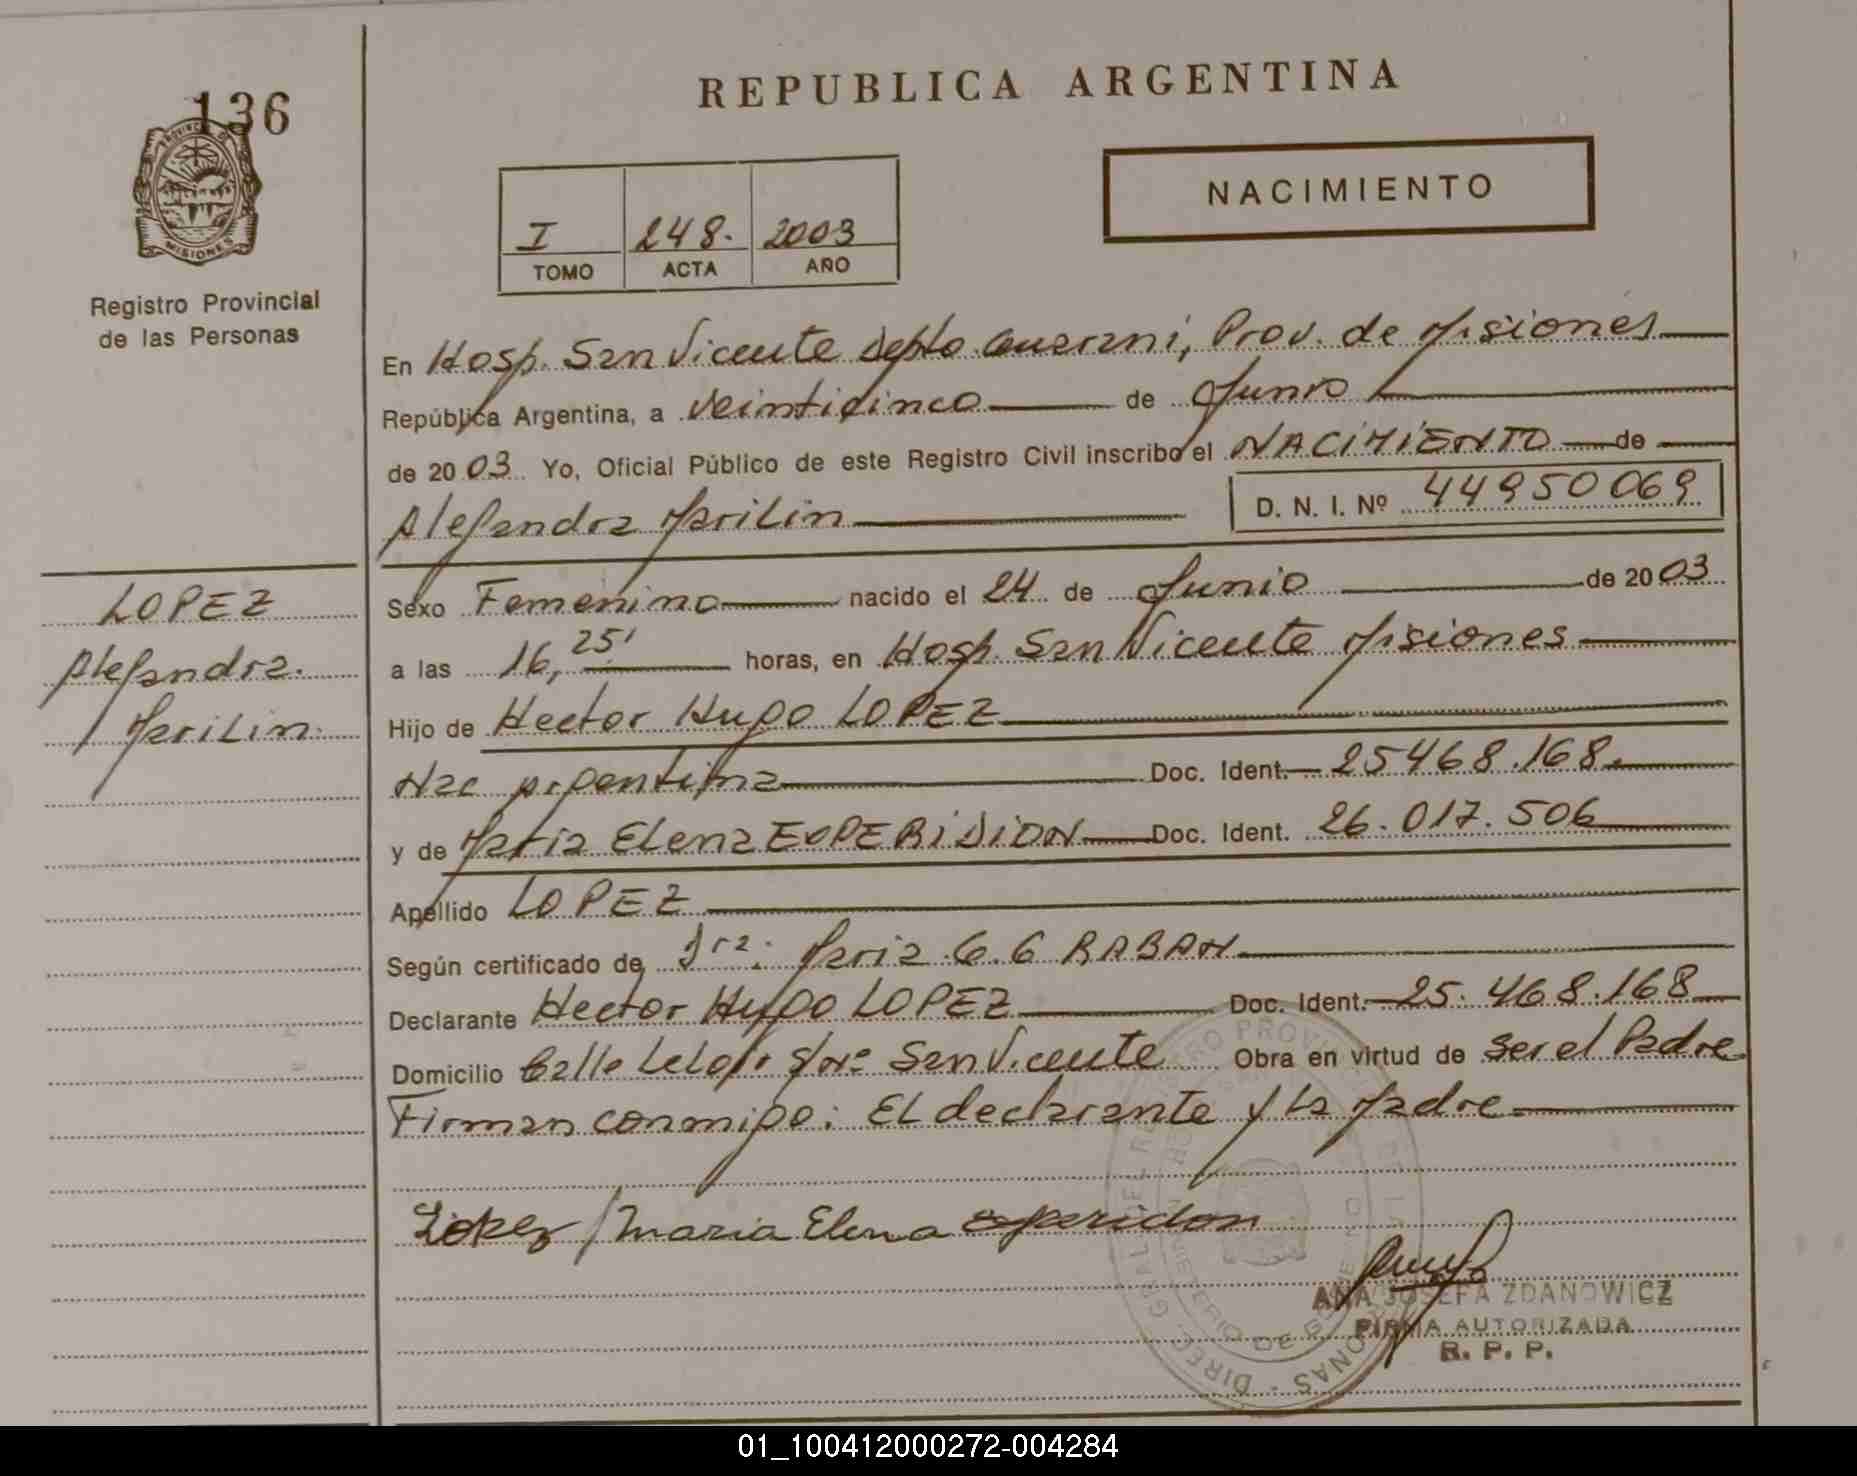 136
PROVINCIA DE
MISIONES
Registro Provincial
de las Personas
LOPEZ
Alejandra
Marilin
REPUBLICA ARGENTINA
NACIMIENTO
I 248. 2003
TOMO ACTA AÑO
En Hosp. San Vicente Depto Guarani, Prov. de Misiones
República Argentina, a veinticinco de Junio
de 2003 Yo, Oficial Público de este Registro Civil inscribo el NACIMIENTO de
Alejandra Marilin D. N. I. Nº 44950069
Sexo Femenino nacido el 24 de Junio de 2003
a las 16,25' horas, en Hosp. San Vicente Misiones
Hijo de Hector Hugo LOPEZ
Nac Argentina Doc. Ident. 25468.168.
y de Maria Elena EOPERIDION Doc. Ident. 26.017.506
Apellido LOPEZ
Según certificado de Dra. Maria G. G RABAN
Declarante Hector Hugo LOPEZ Doc. Ident. 25.468.168
Domicilio Calle Leloir S/Nº San Vicente Obra en virtud de ser el Padre
Firman conmigo: El declarante y La Madre
López Maria Elena
ANA JOSEFA ZDANOWICZ
FIRMA AUTORIZADA
R. P. P.
01_100412000272-004284